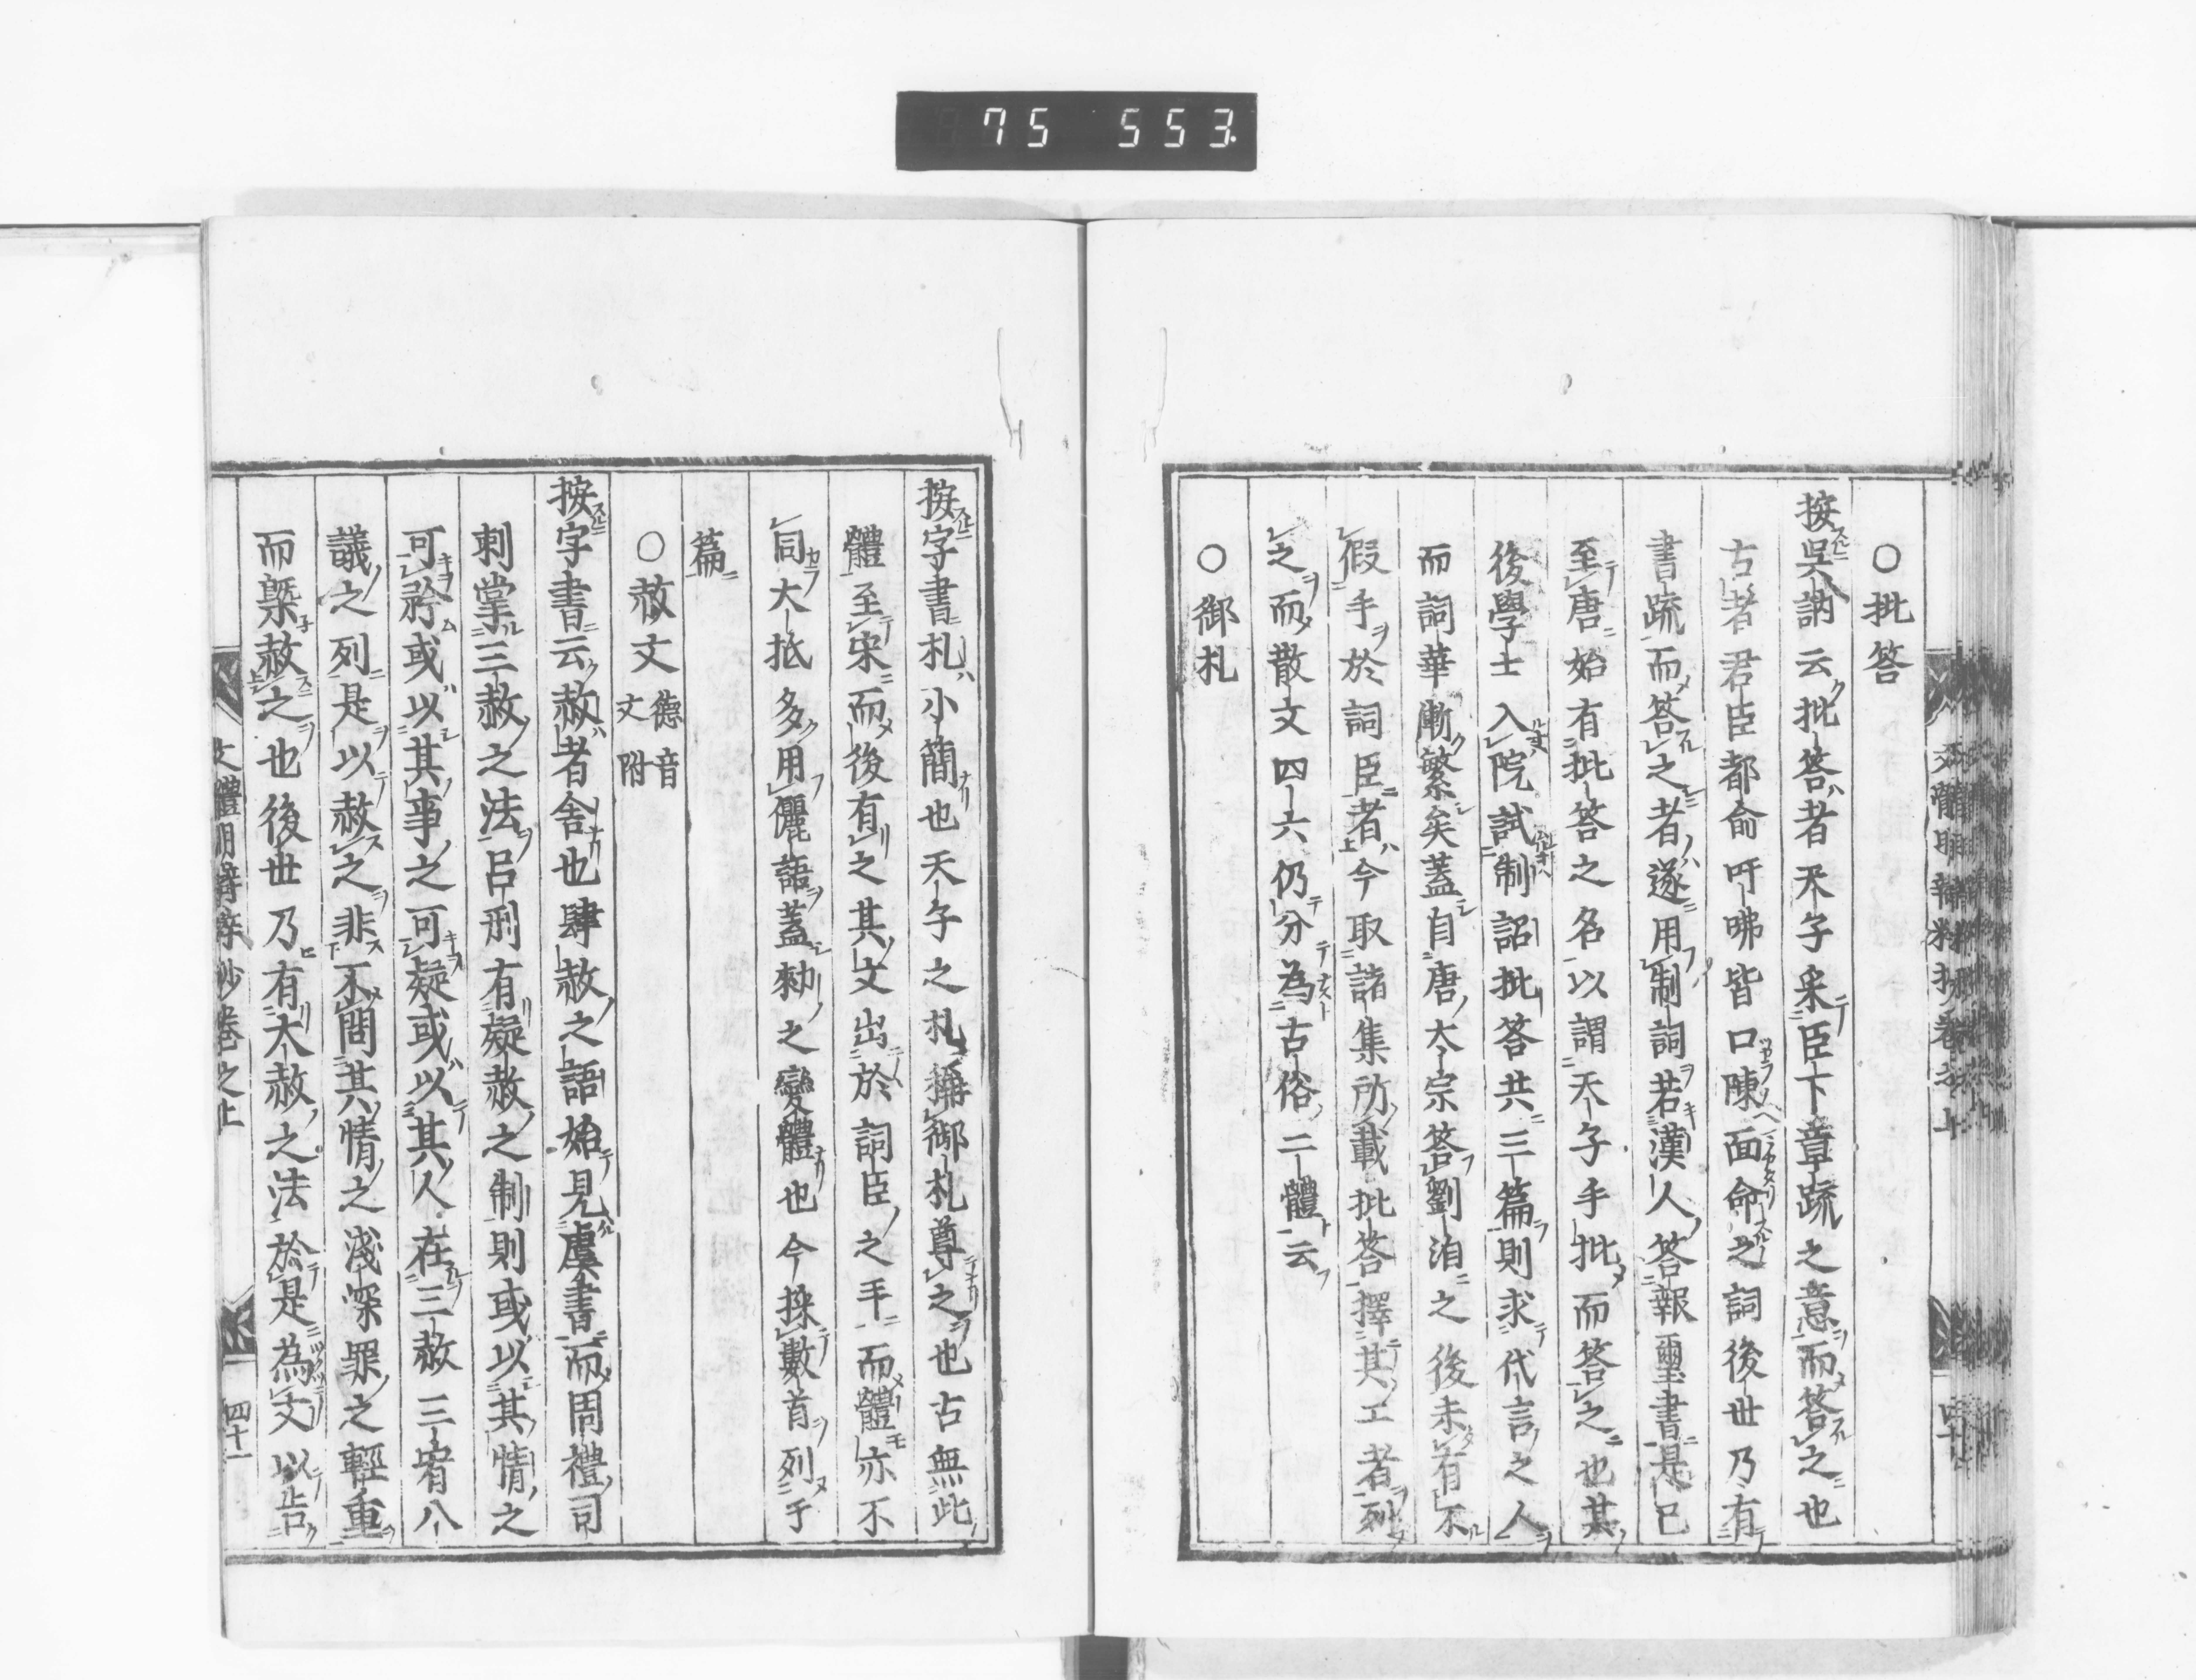 75 553
〇批答
按吳訥云批答者天子采臣下章疏之意而答之也
古者君臣都俞吁咈皆口陳面命之詞後世乃有
書疏而答之者遂用制詞若漢人答報璽書是已
至唐始有批答之名以謂天子手批而答之也其
後學士入院試制詔批答共三篇則求代言之人
而詞華漸繁矣蓋自唐太宗答劉洎之後未有不
假手於詞臣者今取諸集所載批答擇其工者列
之而散文四六仍分為古俗二體云
〇御札
按字書札小簡也天子之札稱御札尊之也古無此
體至宋而後有之其文出於詞臣之手而體亦不
同大抵多用儷語蓋勑之變體也今採數首列于
篇
〇赦文 德音文附
按字書云赦者舍也肆赦之語始見虞書而周禮司
刺掌三赦之法呂刑有疑赦之制則或以其情之
可矜或以其事之可疑或以其人在三赦三宥八
議之列是以赦之非不問其情之淺深罪之輕重
而槩赦之也後世乃有大赦之法於是為文以告
文體明辯粹抄卷之上 四十一